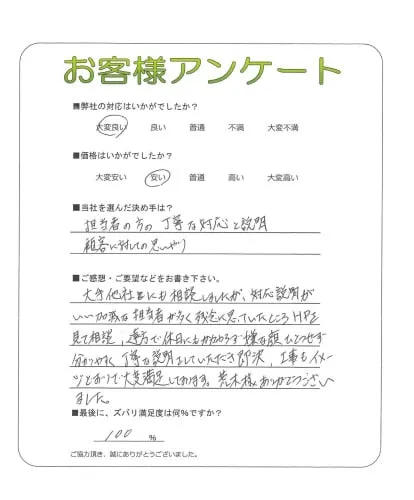 お客様アンケート
■弊社の対応はいかがでしたか?
大変良い 良い 普通 不満 大変不満
■価格はいかがでしたか?
大変安い 安い 普通 高い 大変高い
■当社を選んだ決め手は?
担当者の方の丁寧な対応と説明
顧客に対しての思いやり
■ご感想・ご要望などをお書き下さい。
大手他社にも相談しましたが、対応説明が
いい加減な担当者が多く残念に思っていたところHPを
見て相談、遠方で休日にもかかわらず嫌な顔ひとつせず
分かりやすく丁寧な説明をしていただき即決、工事もイメー
ジどおりで大変満足しております。荒木様ありがとうござい
ました。
■最後に、ズバリ満足度は何%ですか?
100 %
ご協力頂き、誠にありがとうございました。